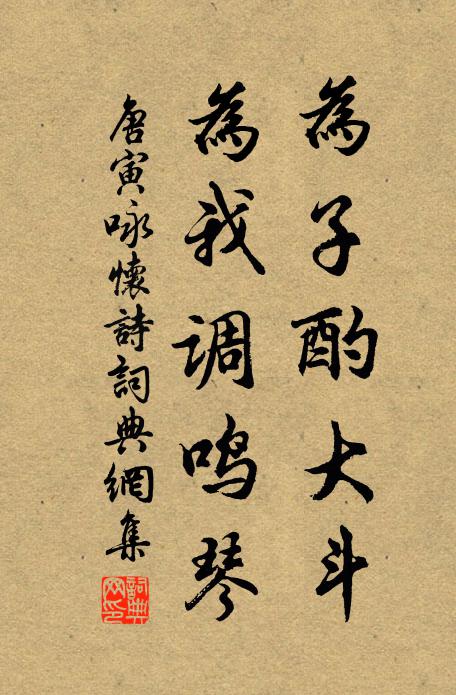 為子酌大斗
為我调鸣琴
唐寅咏懷詩詞典網集
詞典
网印